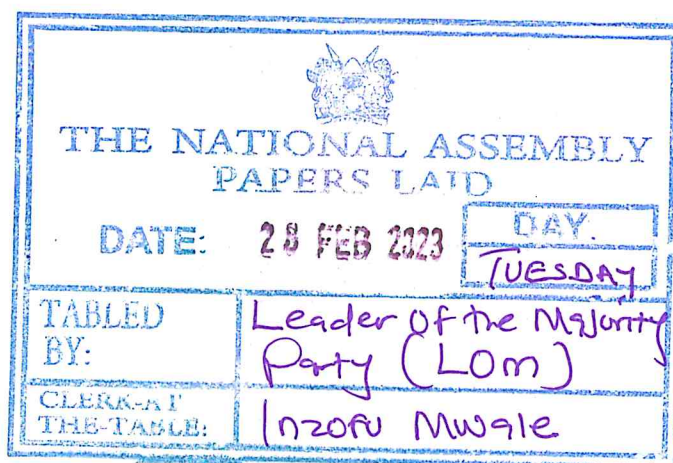 THE NATIONAL ASSEMBLY
PAPERS LAID
DATE: 28 FEB 2023
DAY.
TUESDAY
TABLED BY:
Leader of the Majority
Party (LOM)
CLERK-AT THE-TABLE:
Inzofu Mwale